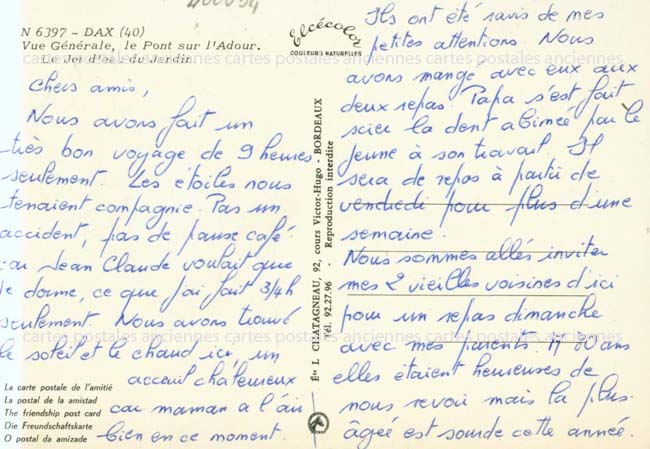 400094
N 6397 - DAX (40)
Vue Générale, le Pont sur l'Adour.
Le Jet d'eau du Jardin
Elcécolor
COULEURS NATURELLES
cartes postales anciennes cartes postales anciennes cartes postales anciennes
Chers amis,
Nous avons fait un
très bon voyage de 9 heures
seulement. Les étoiles nous
tenaient compagnie. Pas un
accident, pas de pause café
car Jean Claude voulait que
je dorme, ce que j'ai fait 3/4h
seulement. Nous avons trouvé
le soleil et le chaud ici, un
acceuil châleureux
car maman a l'air
bien en ce moment.
La carte postale de l'amitié
La postal de la amistad
The friendship post card
Die Freundschaftskarte
O postal da amizade
Éts L. CHATAGNEAU, 92, cours Victor-Hugo - BORDEAUX
Tél. 92.27.96 - Reproduction interdite
Ils ont été ravis de mes
petites attentions. Nous
avons mangé avec eux aux
deux repas. Papa s'est fait
scier la dent abimée par le
jeune à son travail. Il
sera de repos à partir de
vendredi pour plus d'une
semaine.
Nous sommes allés inviter
mes 2 vieilles voisines d'ici
pour un repas dimanche
avec mes parents. 80 ans
elles étaient heureuses de
nous revoir mais la plus
âgée est sourde cette année.
cartes postales anciennes cartes postales anciennes cartes postales anciennes